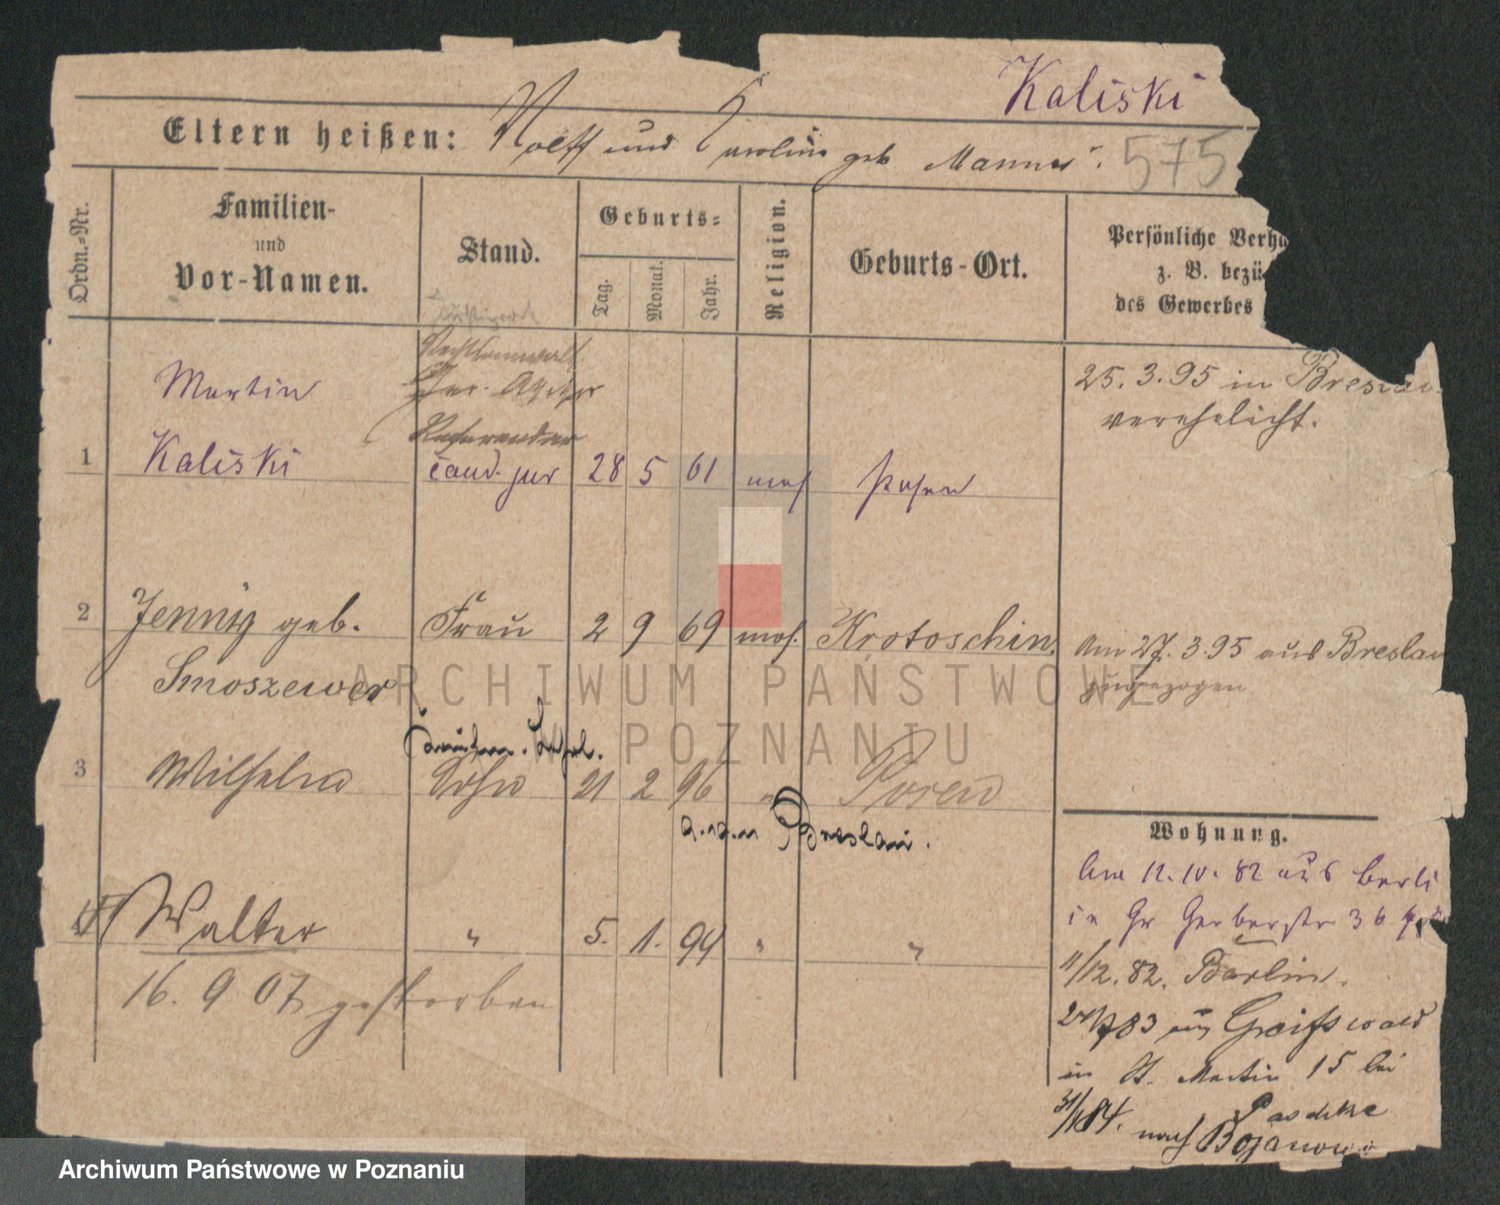 Kaliski
Eltern heißen: Wolff und Caroline geb Mannes. 575
Ordn.-Nr.
Familien-
und
Vor-Namen.
Stand.
Geburts-
Tag.
Monat.
Jahr.
Religion.
Geburts-Ort.
Persönliche Verhä
z. B. bezü
des Gewerbes
Rechtsanwalt
Martin
Referendar
1 Kaliski cand. jur 28 5 61 mos Posen
25. 3. 95 in Breslau
verehelicht.
2 Jenny geb. Frau 2 9 69 mos. Krotoschin.
Smoszewer
Am 27. 3. 95 aus Breslau
zugezogen
3 Wilhelm Sohn 21 2 96 " Posen
Breslau.
4 Walter " 5. 1. 99 " "
16. 9 07 gestorben
Wohnung.
Am 12. 10. 82 aus Berli
in Gr Gerberstr 36
11/12. 82. Berlin.
83 aus Greifswald
in St. Martin 15 bei
Paschke
84. nach Bojanowo
ARCHIWUM PAŃSTWOWE
W POZNANIU
Archiwum Państwowe w Poznaniu